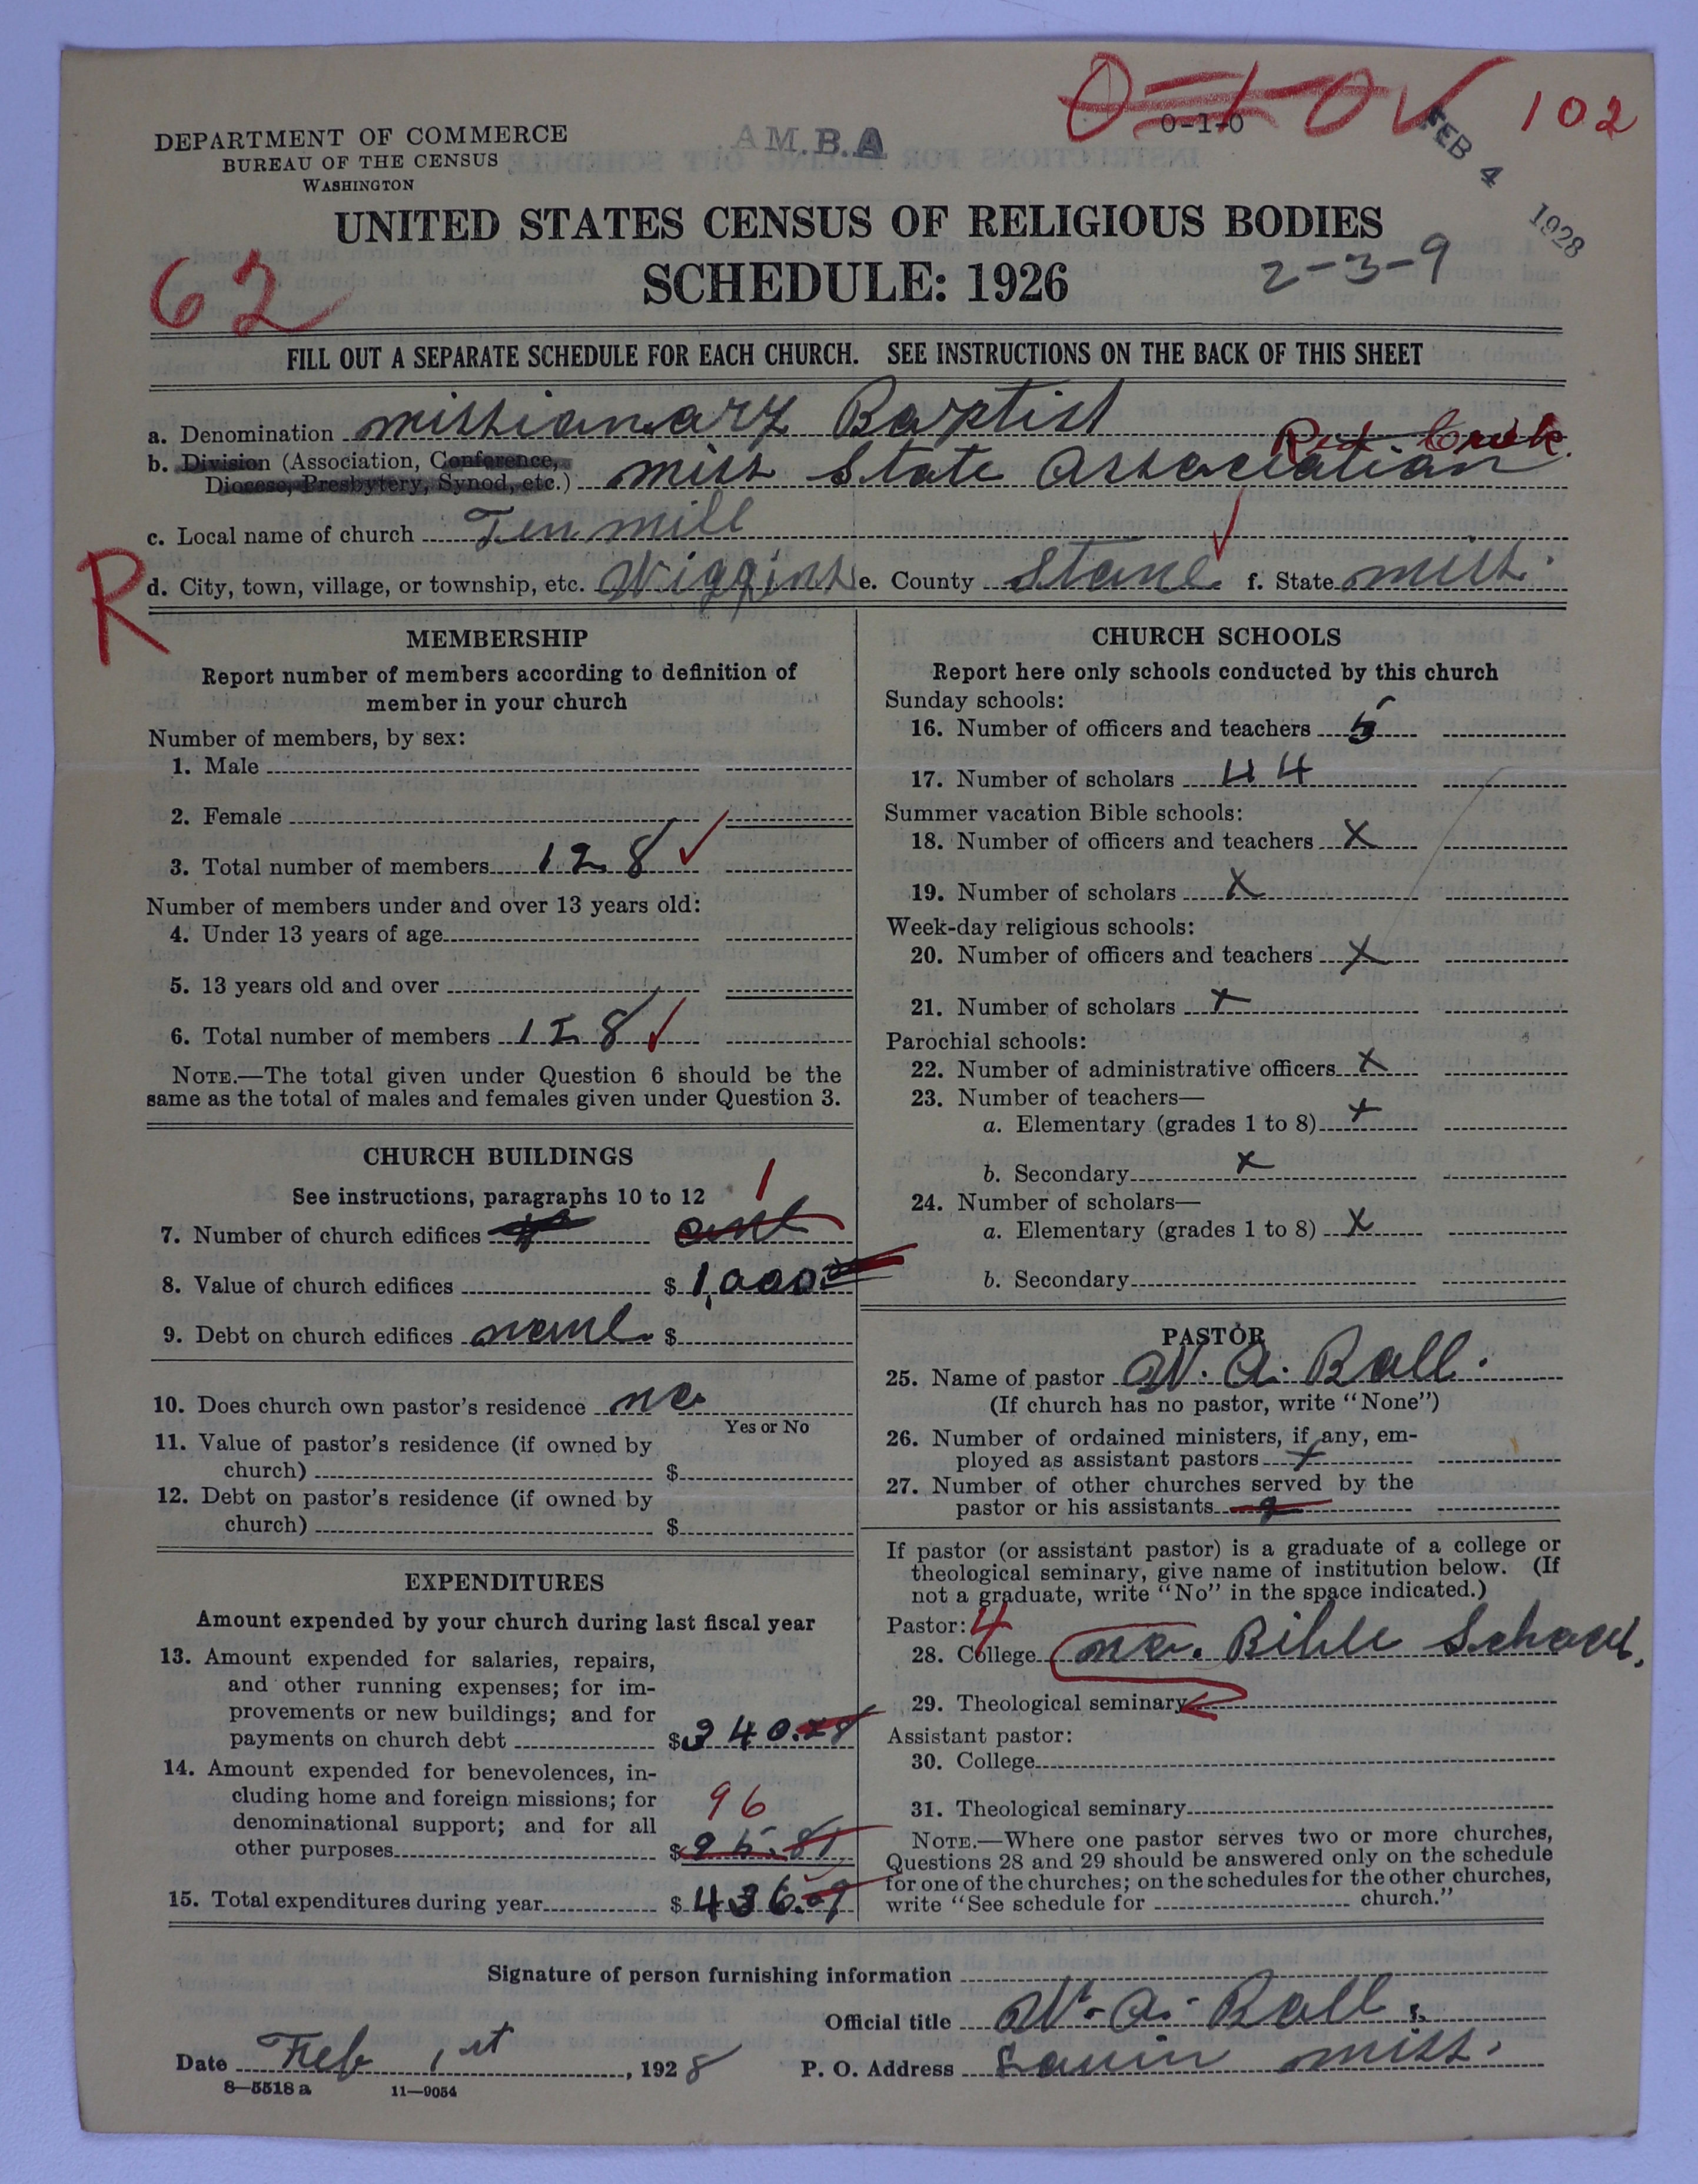 0-1-0 102
0-1-0
DEPARTMENT OF COMMERCE
BUREAU OF THE CENSUS
WASHINGTON
A.M.B.A
FEB 4 1928
UNITED STATES CENSUS OF RELIGIOUS BODIES
SCHEDULE: 1926
2-3-9
62
FILL OUT A SEPARATE SCHEDULE FOR EACH CHURCH. SEE INSTRUCTIONS ON THE BACK OF THIS SHEET
a. Denomination missionary Baptist
Creek
b. Division (Association, Conference,
Diocese, Presbytery, Synod, etc.) miss State Association
c. Local name of church Ten mill
R
d. City, town, village, or township, etc. Wiggins e. County Stone f. State miss.
MEMBERSHIP
Report number of members according to definition of
member in your church
Number of members, by sex:
1. Male
2. Female
3. Total number of members 128
Number of members under and over 13 years old:
4. Under 13 years of age
5. 13 years old and over
6. Total number of members 128
NOTE.—The total given under Question 6 should be the
same as the total of males and females given under Question 3.
CHURCH BUILDINGS
See instructions, paragraphs 10 to 12
1
7. Number of church edifices one
8. Value of church edifices $ 1,000.00
9. Debt on church edifices none $
10. Does church own pastor's residence no
Yes or No
11. Value of pastor's residence (if owned by
church) $
12. Debt on pastor's residence (if owned by
church) $
EXPENDITURES
Amount expended by your church during last fiscal year
13. Amount expended for salaries, repairs,
and other running expenses; for im-
provements or new buildings; and for
payments on church debt $ 340.28
14. Amount expended for benevolences, in-
cluding home and foreign missions; for
96
denominational support; and for all
other purposes $ 95.81
15. Total expenditures during year $ 436.09
CHURCH SCHOOLS
Report here only schools conducted by this church
Sunday schools:
16. Number of officers and teachers 5
17. Number of scholars 44
Summer vacation Bible schools:
18. Number of officers and teachers X
19. Number of scholars X
Week-day religious schools:
20. Number of officers and teachers X
21. Number of scholars X
Parochial schools:
22. Number of administrative officers X
23. Number of teachers—
a. Elementary (grades 1 to 8) X
b. Secondary X
24. Number of scholars—
a. Elementary (grades 1 to 8) X
b. Secondary
PASTOR
25. Name of pastor W. A. Ball.
(If church has no pastor, write "None")
26. Number of ordained ministers, if any, em-
ployed as assistant pastors X
27. Number of other churches served by the
pastor or his assistants
If pastor (or assistant pastor) is a graduate of a college or
theological seminary, give name of institution below. (If
not a graduate, write "No" in the space indicated.)
Pastor: 4
28. College no. Bible School.
29. Theological seminary
Assistant pastor:
30. College
31. Theological seminary
NOTE.—Where one pastor serves two or more churches,
Questions 28 and 29 should be answered only on the schedule
for one of the churches; on the schedules for the other churches,
write "See schedule for church."
Signature of person furnishing information
Official title W. A. Ball.
Date Feb 1st, 1928 P. O. Address miss.
8—5518 a 11—9054